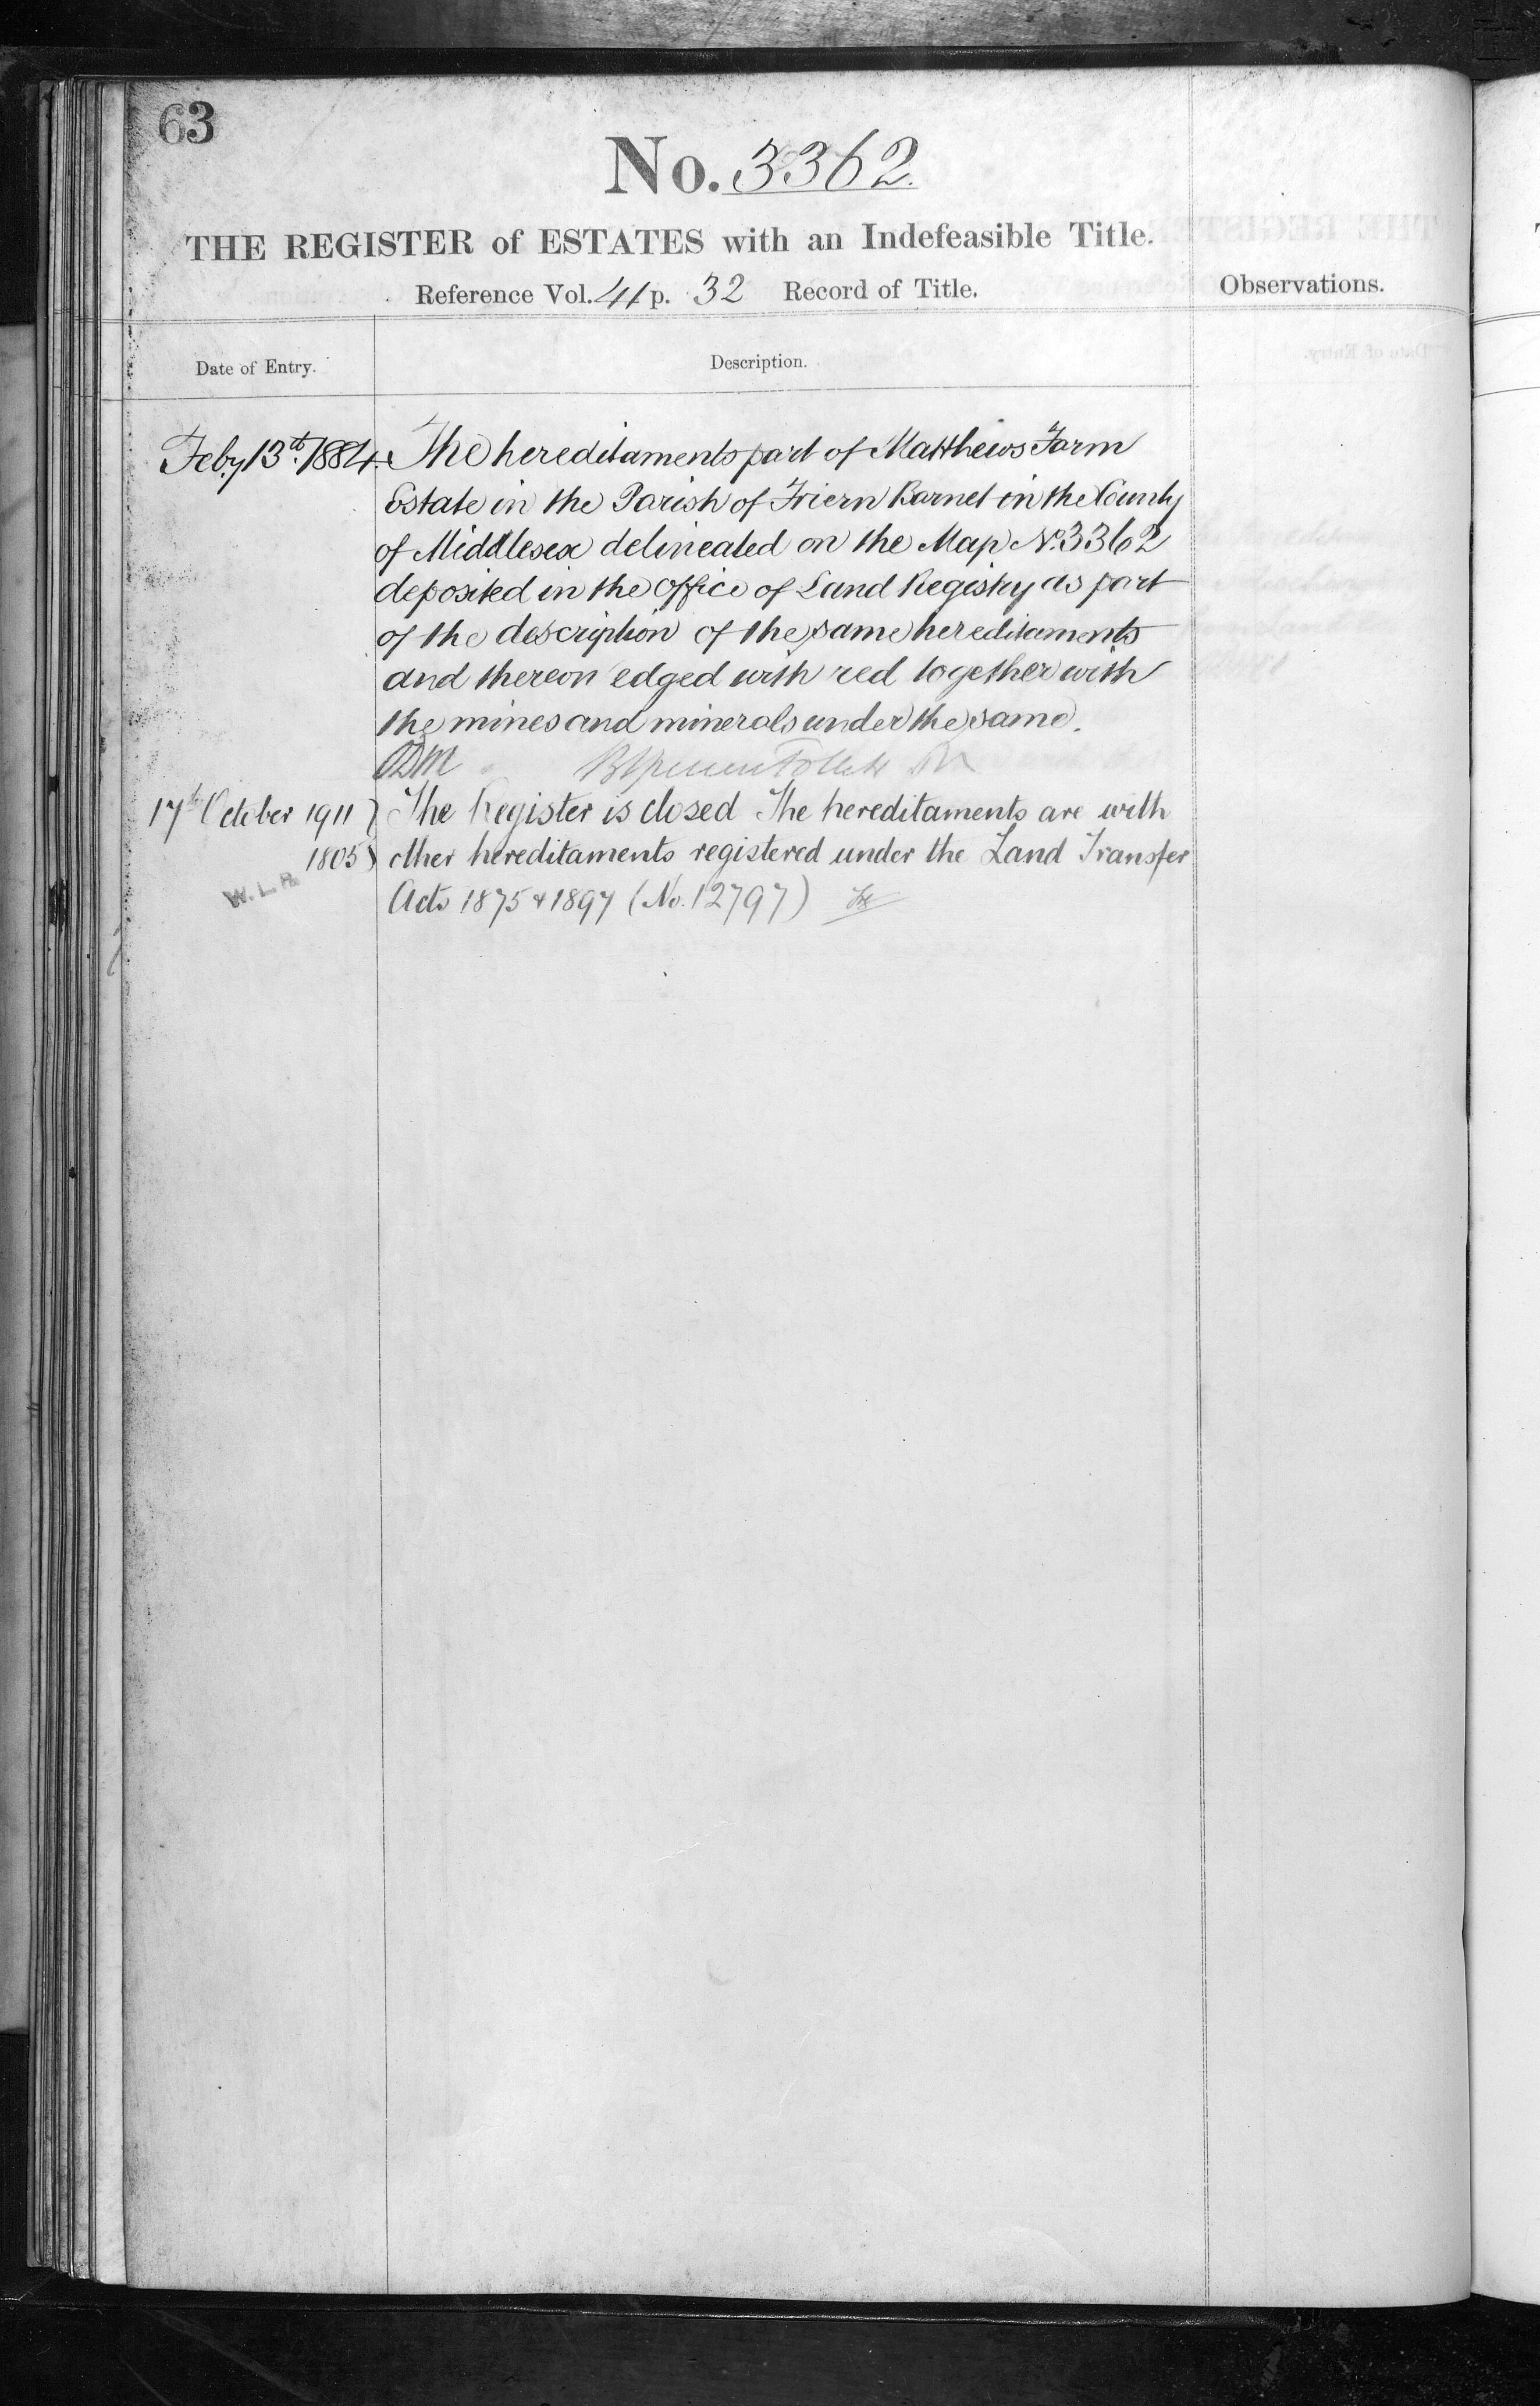 63
No. 3362.
THE REGISTER of ESTATES with an Indefeasible Title.
Reference Vol. 41 p. 32 Record of Title.
Observations.
Date of Entry.
Description.
Feby 13th 1884. The hereditaments part of Matthews Farm
Estate in the Parish of Friern Barnet in the County
of Middlesex delineated on the Map No. 3362
deposited in the Office of Land Registry as part
of the description of the same hereditaments
and thereon edged with red together with
the mines and minerals under the same.
17th October 1911 } The Register is closed The hereditaments are with
1805 } other hereditaments registered under the Land Transfer
W. L. R.
Acts 1875 & 1897 (No. 12797)